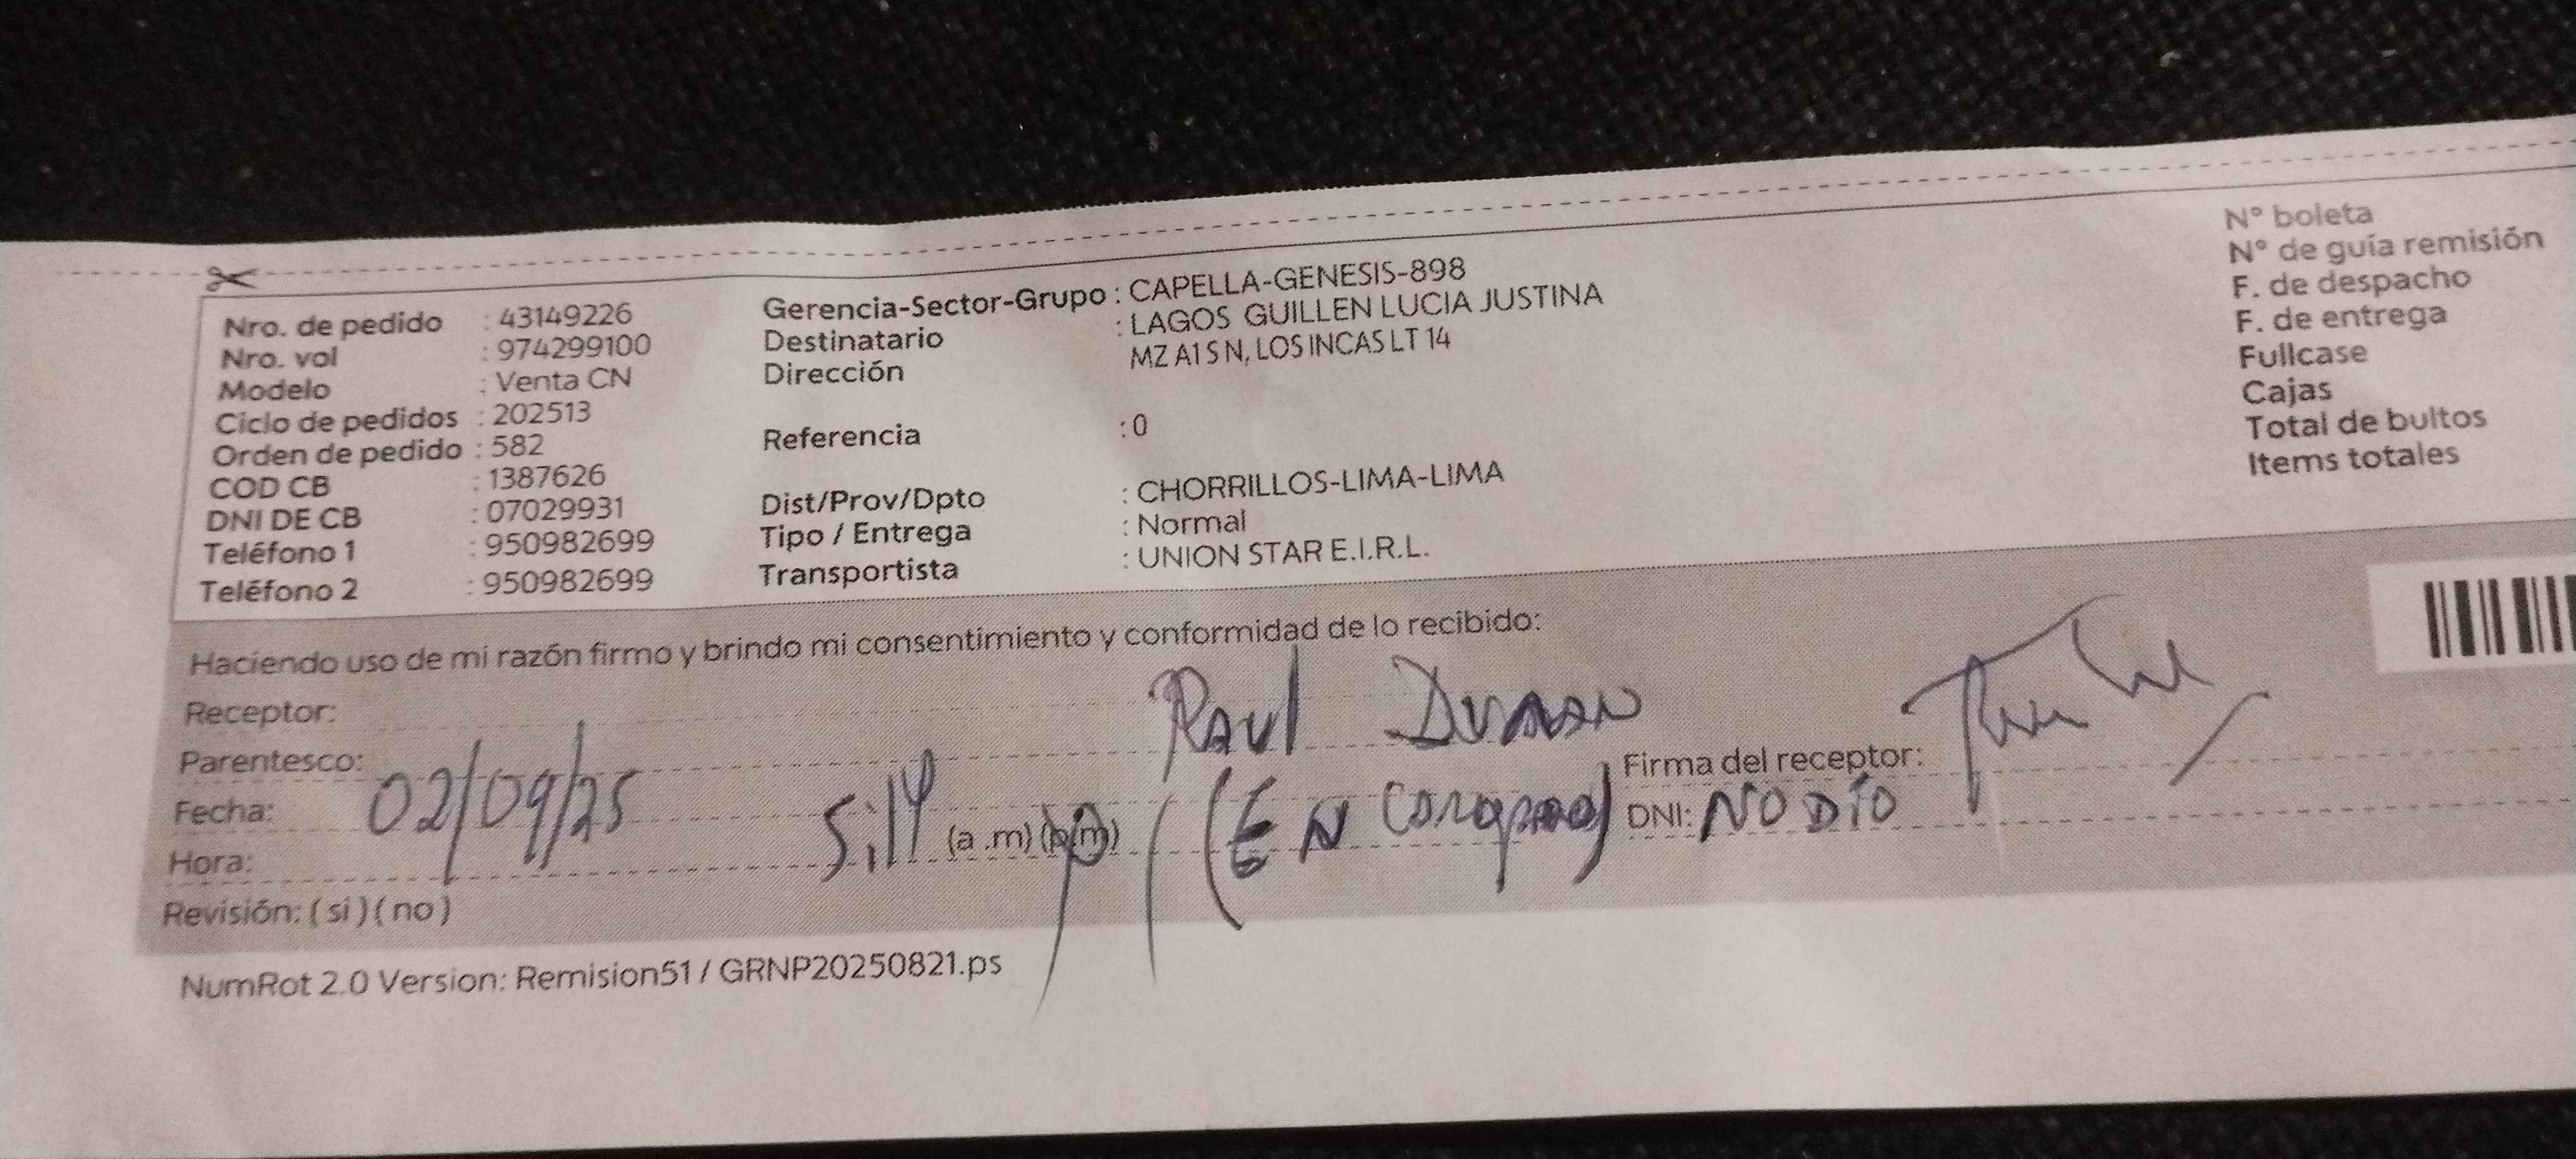 Nro. de pedido : 43149226
Nro. vol : 974299100
Modelo : Venta CN
Ciclo de pedidos : 202513
Orden de pedido : 582
COD CB : 1387626
DNI DE CB : 07029931
Teléfono 1 : 950982699
Teléfono 2 : 950982699
Gerencia-Sector-Grupo : CAPELLA-GENESIS-898
Destinatario : LAGOS GUILLEN LUCIA JUSTINA
Dirección MZ A1 S N, LOS INCAS LT 14
Referencia : 0
Dist/Prov/Dpto : CHORRILLOS-LIMA-LIMA
Tipo / Entrega : Normal
Transportista : UNION STAR E.I.R.L.
N° boleta
N° de guía remisión
F. de despacho
F. de entrega
Fullcase
Cajas
Total de bultos
Items totales
Haciendo uso de mi razón firmo y brindo mi consentimiento y conformidad de lo recibido:
Receptor: Raul
Parentesco: Firma del receptor:
Fecha: 02/09/25 (a .m) (p.m) (EN DNI: NO DÍO
Hora:
Revisión: ( si ) ( no )
NumRot 2.0 Version: Remision51 / GRNP20250821.ps